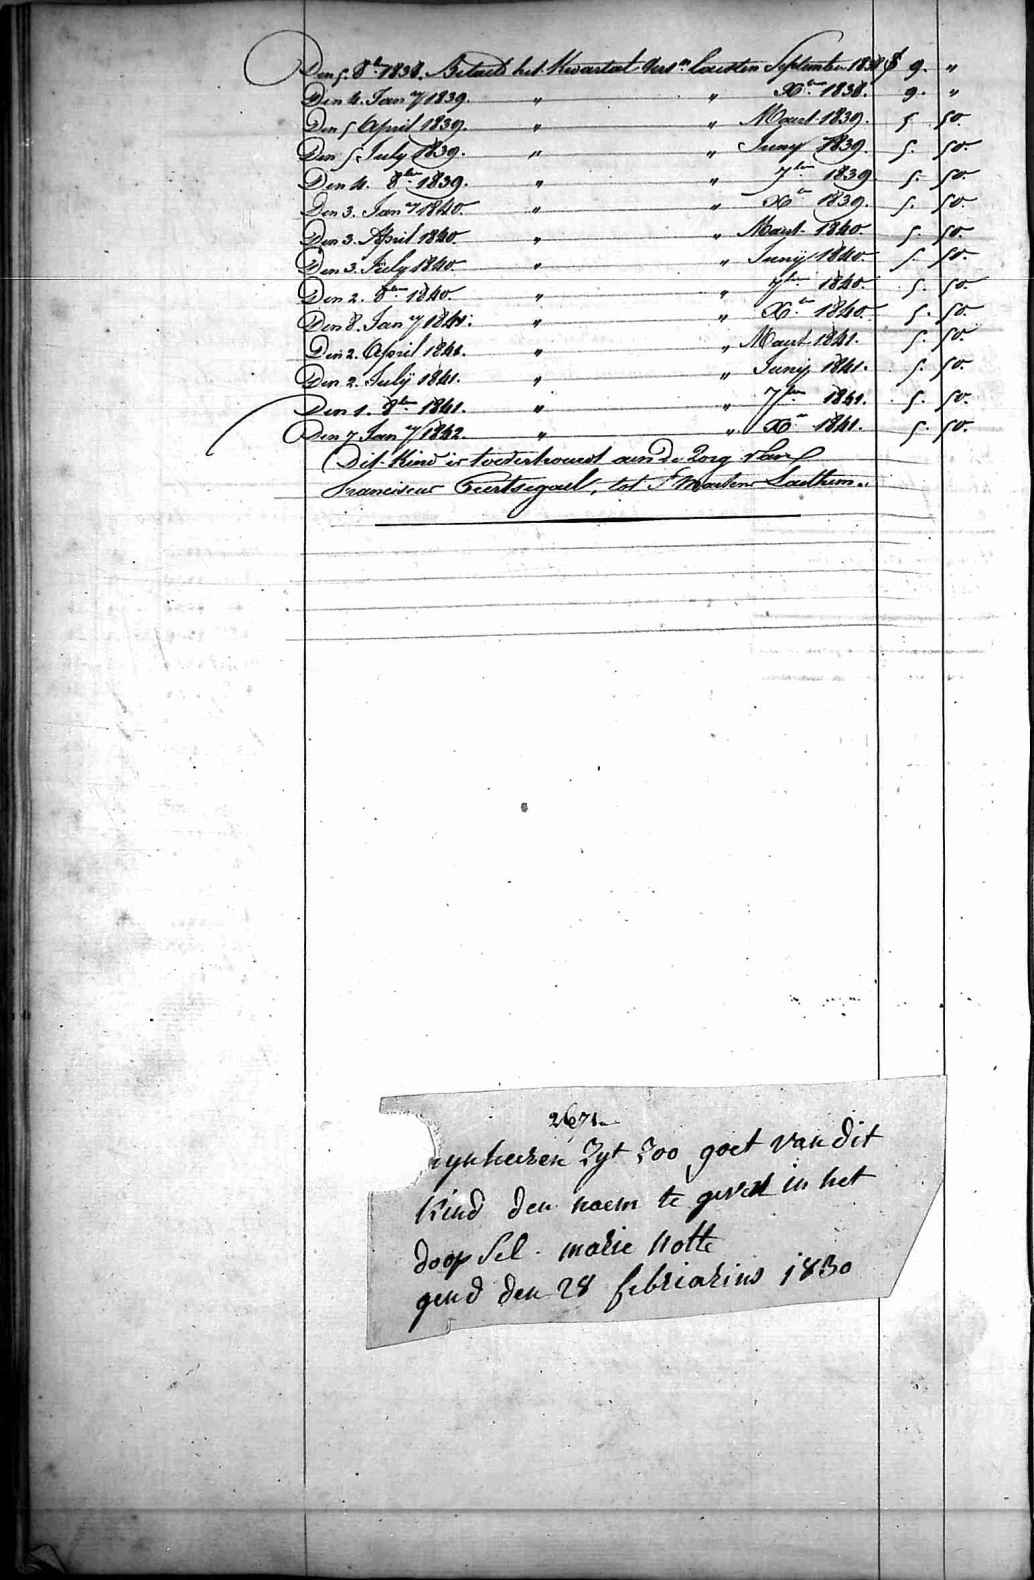 Den 5. 8br 1838. Betaelt het Kwartael vers.n laesten September 1838 f 9. "
Den 4. Jany 1839. " " Xbr 1838. 9. "
Den 5 April 1839. " " Maert 1839. 5. 50.
Den 5. July 1839. " " Juny 1839. 5. 50.
Den 4. 8br 1839. " " 7br 1839. 5. 50.
Den 3. Jany 1840. " " Xbr 1839. 5. 50.
Den 3. April 1840. " " Maert 1840 5. 50.
Den 3. July 1840. " " Junij 1840. 5. 50.
Den 2. 8br 1840. " " 7br 1840. 5. 50.
Den 8. Jany 1841. " " Xbr 1840. 5. 50.
Den 2. April 1841. " " Maert 1841. 5. 50.
Den 2. Julij 1841. " " Junij 1841. 5. 50.
Den 1. 8br 1841. " " 7br 1841. 5. 50.
Den 7 Jany 1842. " " Xbr 1841. 5. 50.
Dit Kind is toevertrouwt aen de Zorg van
Franciscus tot St Martens Laethem.
2671.
ynheeren Zyt Zoo goet van dit
kind den naem te geven in het
doopsel. marie Nolte
gend den 28 febriarius 1830